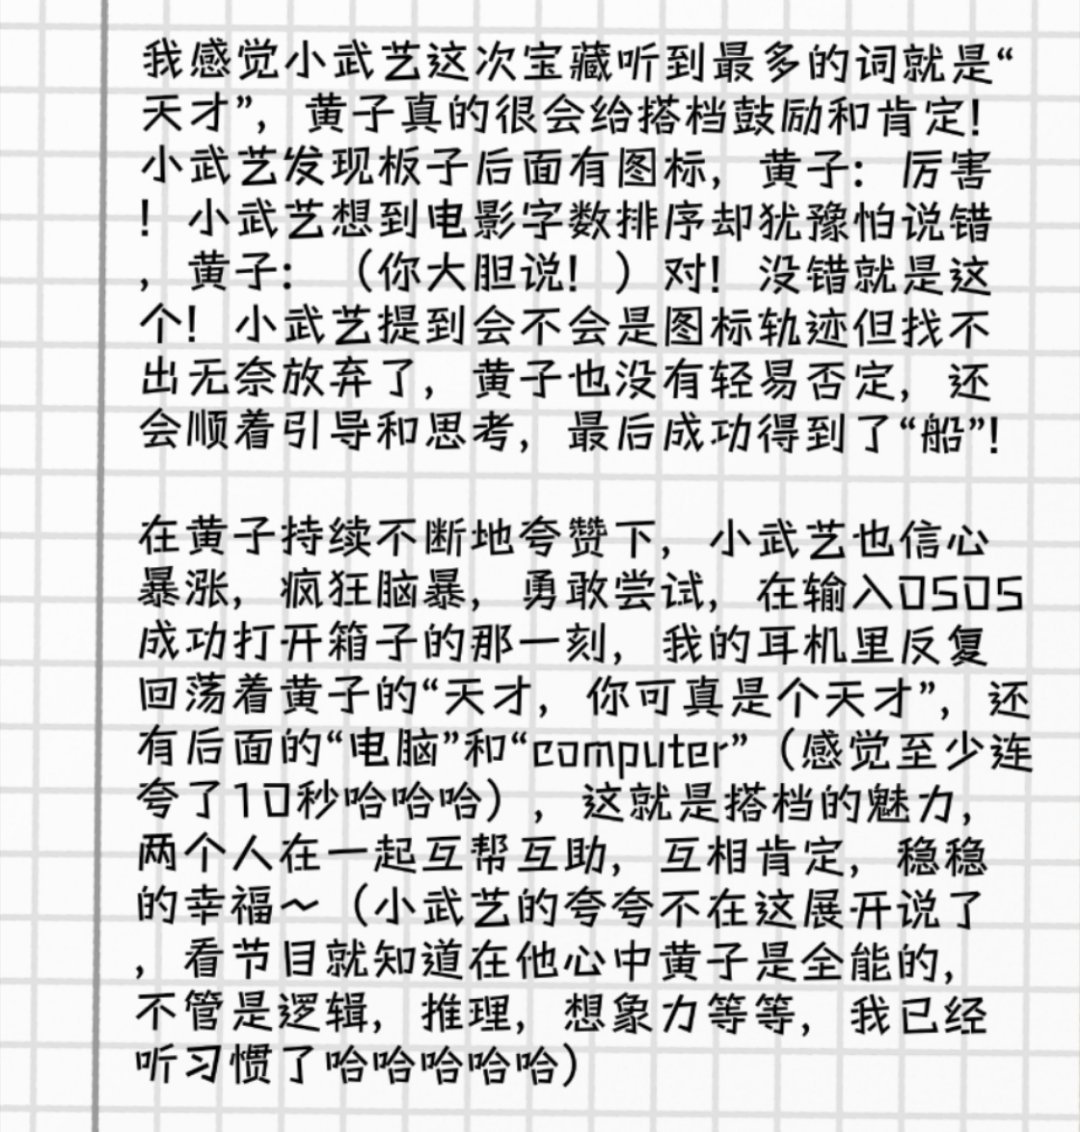 我感觉小武艺这次宝藏听到最多的词就是“
天才”，黄子真的很会给搭档鼓励和肯定！
小武艺发现板子后面有图标，黄子：厉害
！小武艺想到电影字数排序却犹豫怕说错
，黄子：（你大胆说！）对！没错就是这
个！小武艺提到会不会是图标轨迹但找不
出无奈放弃了，黄子也没有轻易否定，还
会顺着引导和思考，最后成功得到了“船”！

在黄子持续不断地夸赞下，小武艺也信心
暴涨，疯狂脑暴，勇敢尝试，在输入0505
成功打开箱子的那一刻，我的耳机里反复
回荡着黄子的“天才，你可真是个天才”，还
有后面的“电脑”和“computer”（感觉至少连
夸了10秒哈哈哈），这就是搭档的魅力，
两个人在一起互帮互助，互相肯定，稳稳
的幸福～（小武艺的夸夸不在这展开说了
，看节目就知道在他心中黄子是全能的，
不管是逻辑，推理，想象力等等，我已经
听习惯了哈哈哈哈哈）